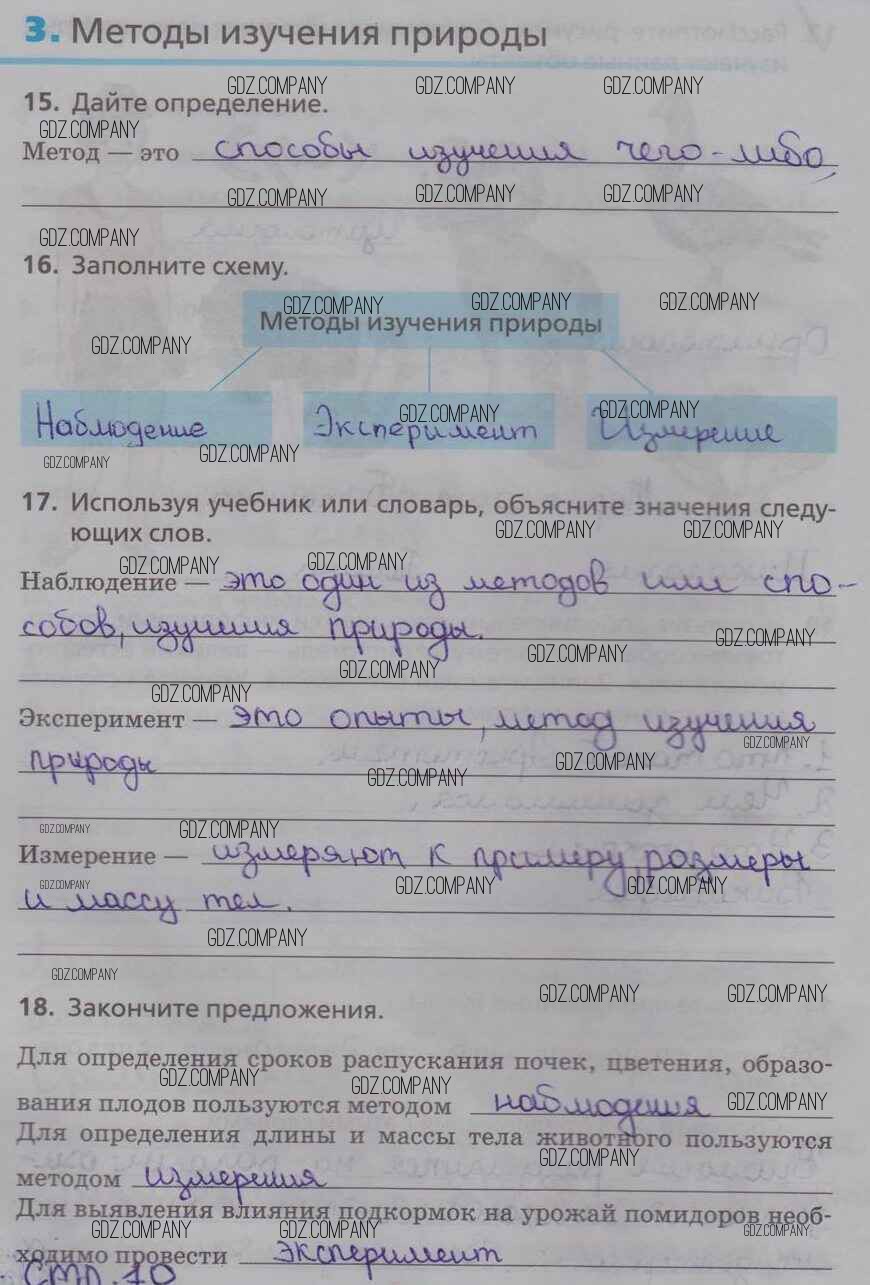 3. Методы изучения природы
15. Дайте определение.
Метод — это способы изучения чего-либо
16. Заполните схему.
Методы изучения природы
Наблюдение Эксперимент Измерение
17. Используя учебник или словарь, объясните значения следу-
ющих слов.
Наблюдение — это один из методов или спо-
собов, изучения природы.
Эксперимент — это опыты, метод изучения
природы
Измерение — измеряют к примеру размеры
и массу тел.
18. Закончите предложения.
Для определения сроков распускания почек, цветения, образо-
вания плодов пользуются методом наблюдения
Для определения длины и массы тела животного пользуются
методом измерения
Для выявления влияния подкормок на урожай помидоров необ-
ходимо провести эксперимент
стр. 10
GDZ.COMPANY